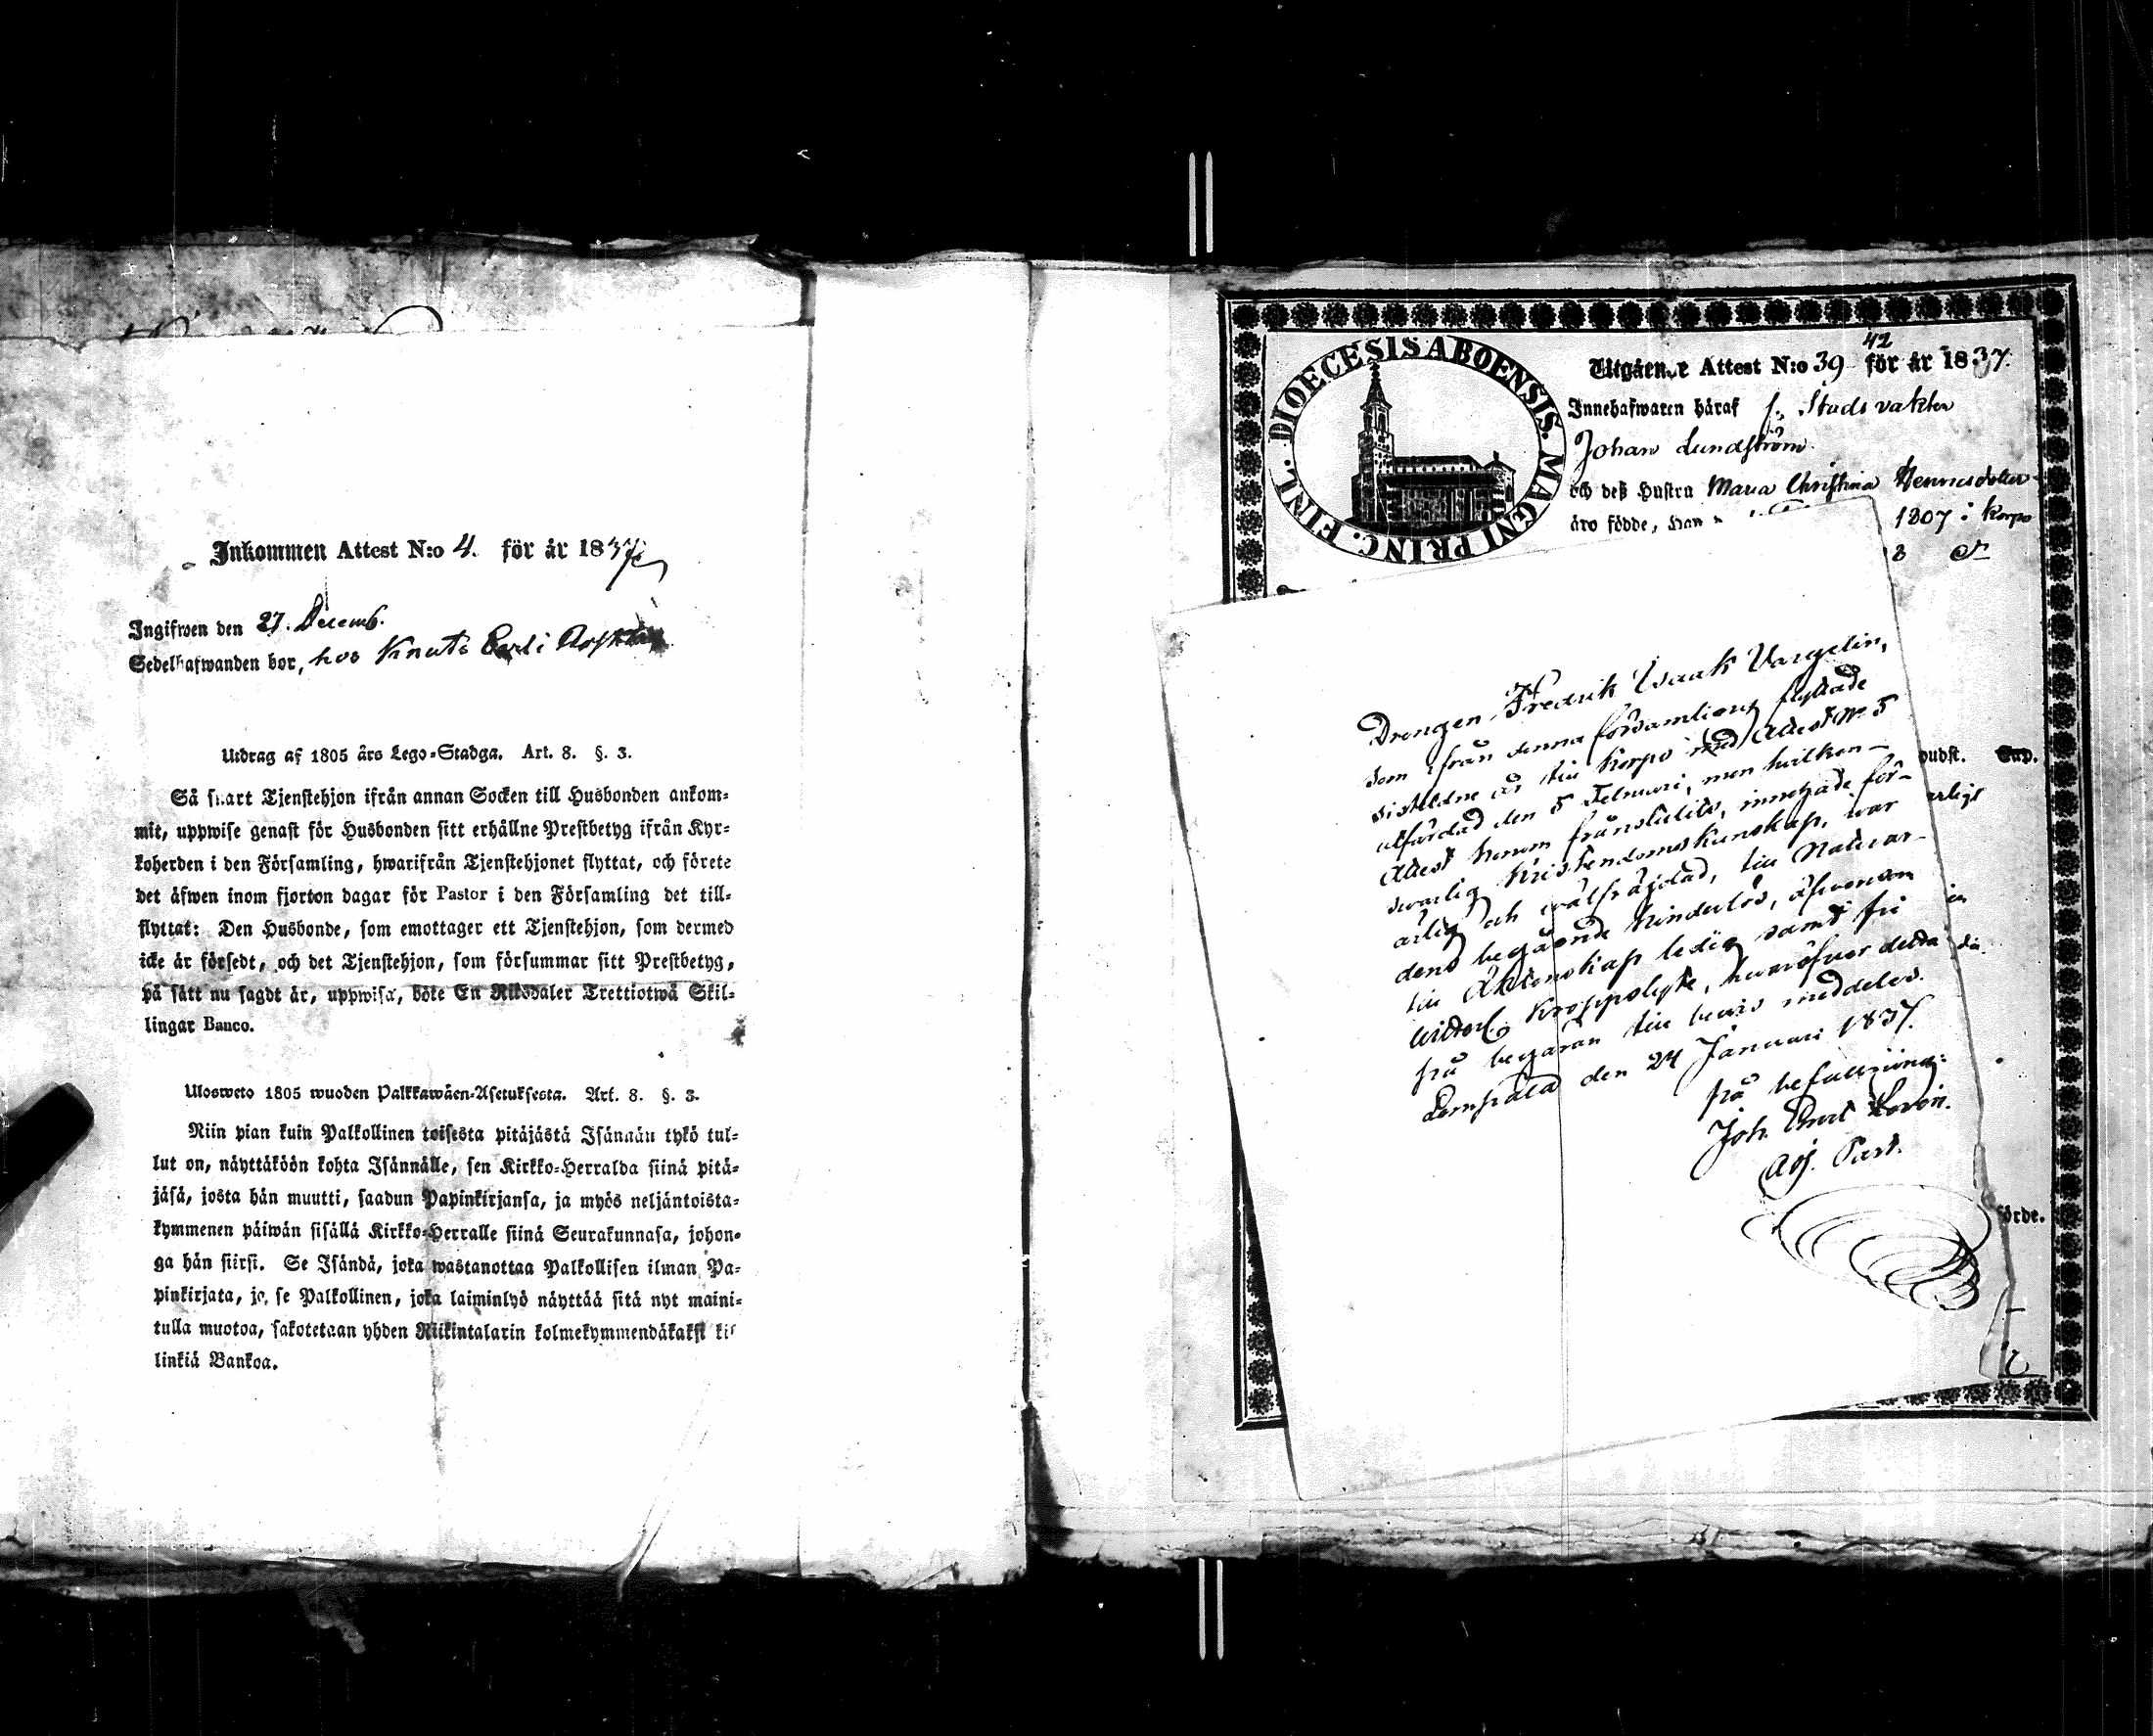 Inkommen Attest N:o 4. för år 1837
Ingifwen den 27. Decemb.
Sedelhafwanden bor, hos Knuts
Utdrag af 1805 års Lego-Stadga. Art. 8. §. 3.
Så snart Tjenstehjon ifrån annan Socken till Husbonden ankom-
mit, uppwise genast för Husbonden sitt erhållne Prestbetyg ifrån Kyr-
koherden i den Församling, hwarifrån Tjenstehjonet flyttat, och förete
det äfwen inom fjorton dagar för Pastor i den Församling det till-
flyttat: Den Husbonde, som emottager ett Tjenstehjon, som dermed
icke är försedt, och det Tjenstehjon, som försummar sitt Prestbetyg,
på sätt nu sagdt är, uppwisa, böte En Riksdaler Trettiotwå Skil-
lingar Banco.
Ulosweto 1805 wuoden Palkkawäen-Asetuksesta. Art. 8. §. 3.
Niin pian kuin Palkollinen toisesta pitäjästä Isännän tykö tul-
lut on, näyttäköön kohta Isännälle, sen Kirkko-Herralda siinä pitä-
jäsä, josta hän muutti, saadun Papinkirjansa, ja myös neljäntoista-
kymmenen päiwän sisällä Kirkko-Herralle siinä Seurakunnasa, johon-
ga hän siirsi. Se Isändä, joka wastanottaa Palkollisen ilman Pa-
pinkirjata, ja se Palkollinen, joka laiminlyö näyttää sitä nyt maini-
tulla muotoa, sakotetaan yhden Riikintalarin kolmekymmendäkaksi kil
linkiä Bankoa.
DIOECESIS ABOENSIS. MAGNI PRINC. FINL.
42
Utgående Attest N:o 39 för år 1837.
Innehafwaren häraf f. Stads vakten
Johan Lundström
och deß Hustru Maria Christina Henricsdotter
äro födde, Han 1807 i Korpo
Drengen Fredrik Isaak Vargelin,
som ifrån denna församling flyttade
sistledne år till Korpo med Attest No 5
utfärdad den 5 Februari, men hvilken
Attest honom frånstulits, innehade för-
svarlig Kristendomskunskap, var
ärlig och välfräjdad, till Nattvar-
dens begående hinderlös, äfvensom
till Äktenskap ledig samt fri
från kroppslyte, hvaröfver detta
på begäran till bevis meddelas.
Lempälä den 24 Januari 1837.
på befallning:
Joh.
Adj. Past.
pudst. End.
arligt
förde.